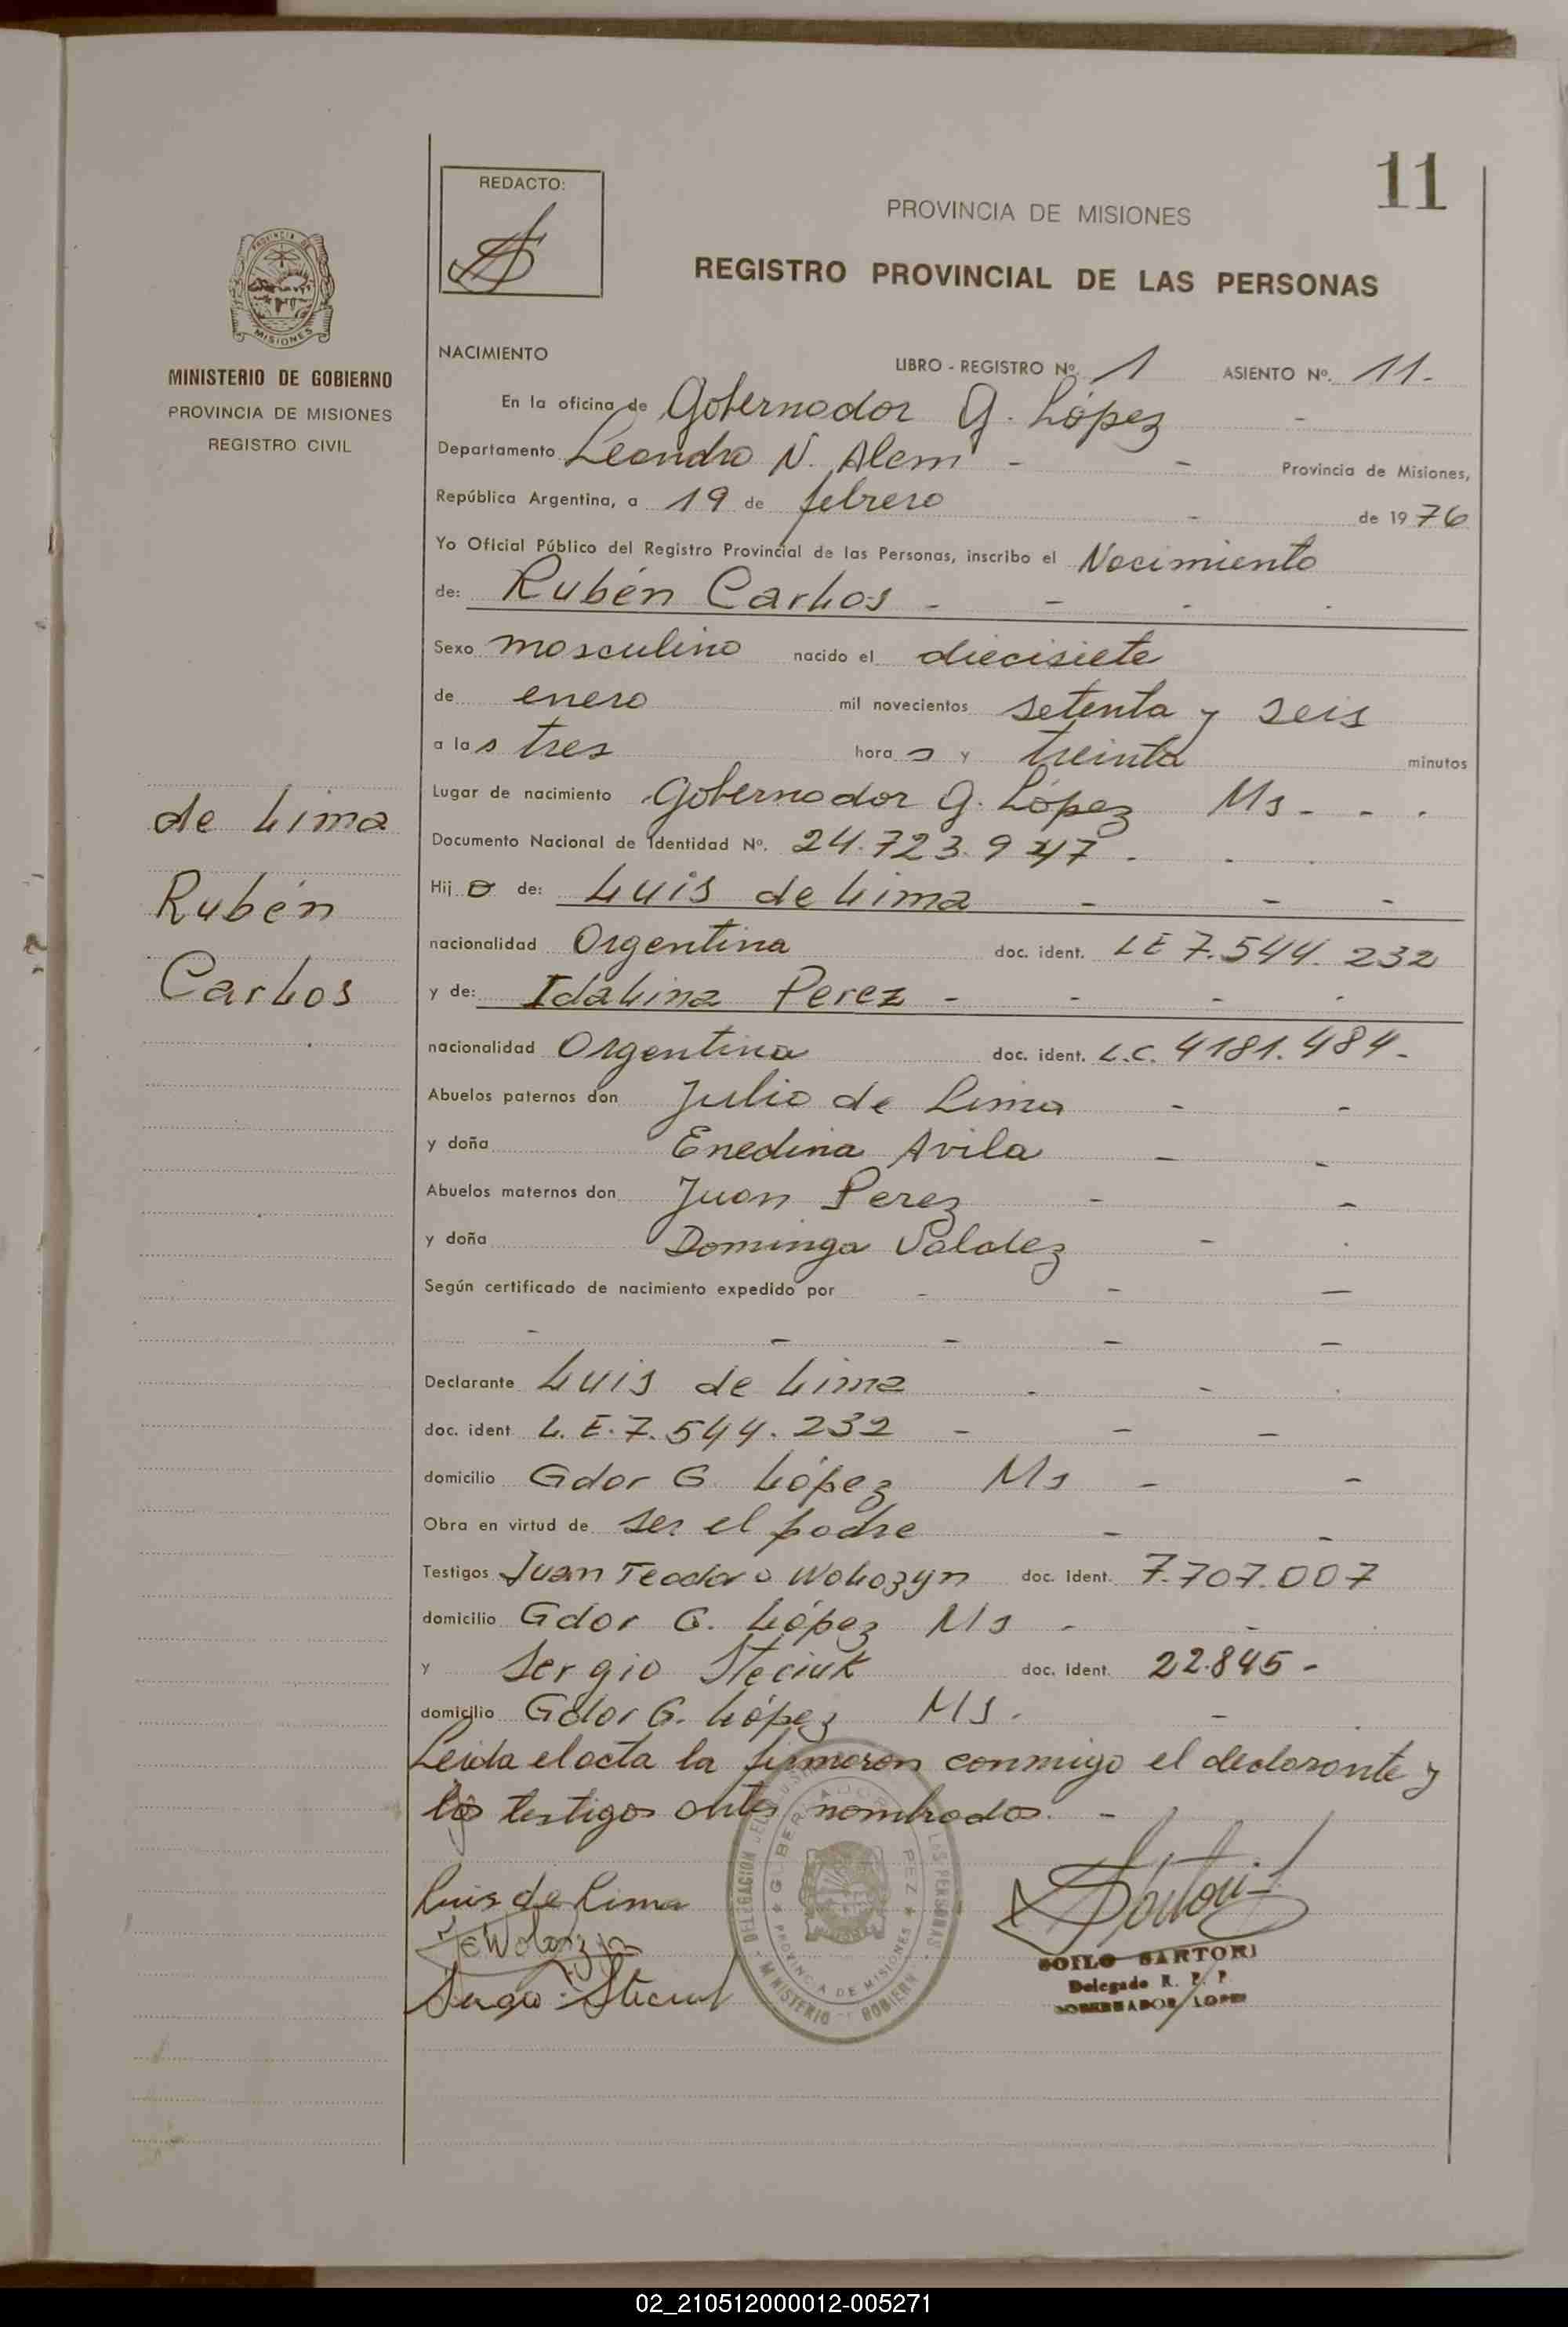 11
REDACTO:
PROVINCIA DE MISIONES
REGISTRO PROVINCIAL DE LAS PERSONAS
MISIONES
MINISTERIO DE GOBIERNO
PROVINCIA DE MISIONES
REGISTRO CIVIL
NACIMIENTO LIBRO - REGISTRO Nº. 1 ASIENTO Nº. 11.-
En la oficina de Gobernador G. López -
Departamento Leandro N. Alem - - Provincia de Misiones,
República Argentina, a 19 de febrero - de 1976
Yo Oficial Público del Registro Provincial de las Personas, inscribo el Nacimiento
de: Rubén Carlos - - - -
Sexo masculino nacido el diecisiete
de enero mil novecientos setenta y seis
a las tres horas y treinta minutos
Lugar de nacimiento Gobernador G. López Ms - - -
Documento Nacional de Identidad Nº. 24.723.947 - - -
Hijo de: Luis de Lima - - -
nacionalidad Argentina doc. ident. LE 7.544.232
y de: Idalina Perez - - - -
nacionalidad Argentina doc. ident. L.C. 4181.484-
Abuelos paternos don Julio de Lima - -
y doña Enedina Avila - -
Abuelos maternos don Juan Perez - -
y doña Dominga Valdez - -
Según certificado de nacimiento expedido por - - -
- - - - -
Declarante Luis de Lima - - -
doc. ident. L.E.7.544.232 - - -
domicilio Gdor G López Ms - -
Obra en virtud de ser el padre - -
Testigos Juan Teodoro Wolozyn doc. Ident. 7.707.007
domicilio Gdor G. López Ms - -
y Sergio Steciuk doc. Ident. 22.845 -
domicilio Gdor G. López MS. -
Leida el acta la firmaron conmigo el declarante y
los testigos antes nombrados. -
de Lima
Rubén
Carlos
Luis de Lima
Sergio Steciuk
SOILO SARTORI
Delegado R. P. P.
GOBERNADOR LOPEZ
PROVINCIA DE MISIONES
02_210512000012-005271